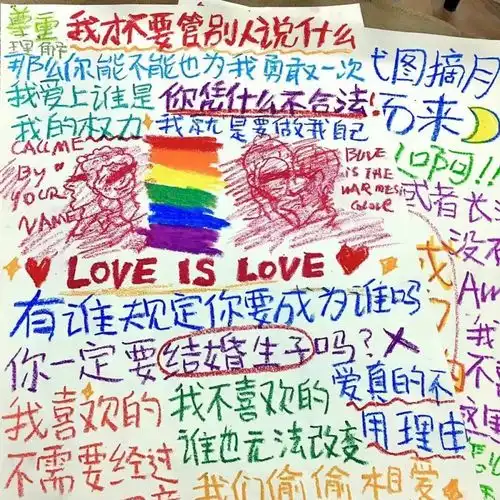 尊重
理解
我才不要管别人说什么
那么你能不能也为我勇敢一次
我爱上谁是
我的权力
你凭什么不合法!
我就是要做我自己
图摘月
而来
CALL ME
BY
YOUR
NAME
BLUE
IS THE
WARMEST
COLOUR
啊!!
或者长
没有
LOVE IS LOVE
有谁规定你要成为谁吗
你一定要结婚生子吗?
爱真的不
用理由
我喜欢的
不需要经过
我不喜欢的
谁也无法改变
我们偷偷相爱